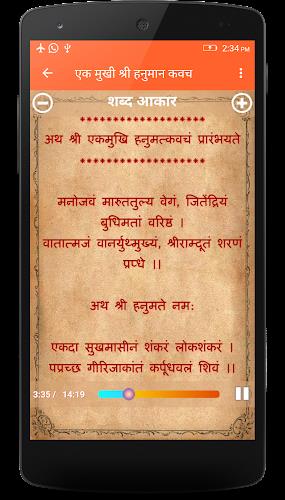 2:34 PM
एक मुखी श्री हनुमान कवच
शब्द आकार
अथ श्री एकमुखि हनुमत्कवचं प्रारंभयते
मनोजवं मारुततुल्य वेगं, जितेंद्रियं
बुधिमतां वरिष्ठं ।
वातात्मजं वानर्युथ्मुख्यं, श्रीराम्दूतं शरणं
प्रप्धे ।।
अथ श्री हनुमते नम:
एकदा सुखमासीनं शंकरं लोकशंकरं ।
पप्रच्छ गीरिजाकांतं कर्पूधवलं शिवं ।।
3:35 / 14:19